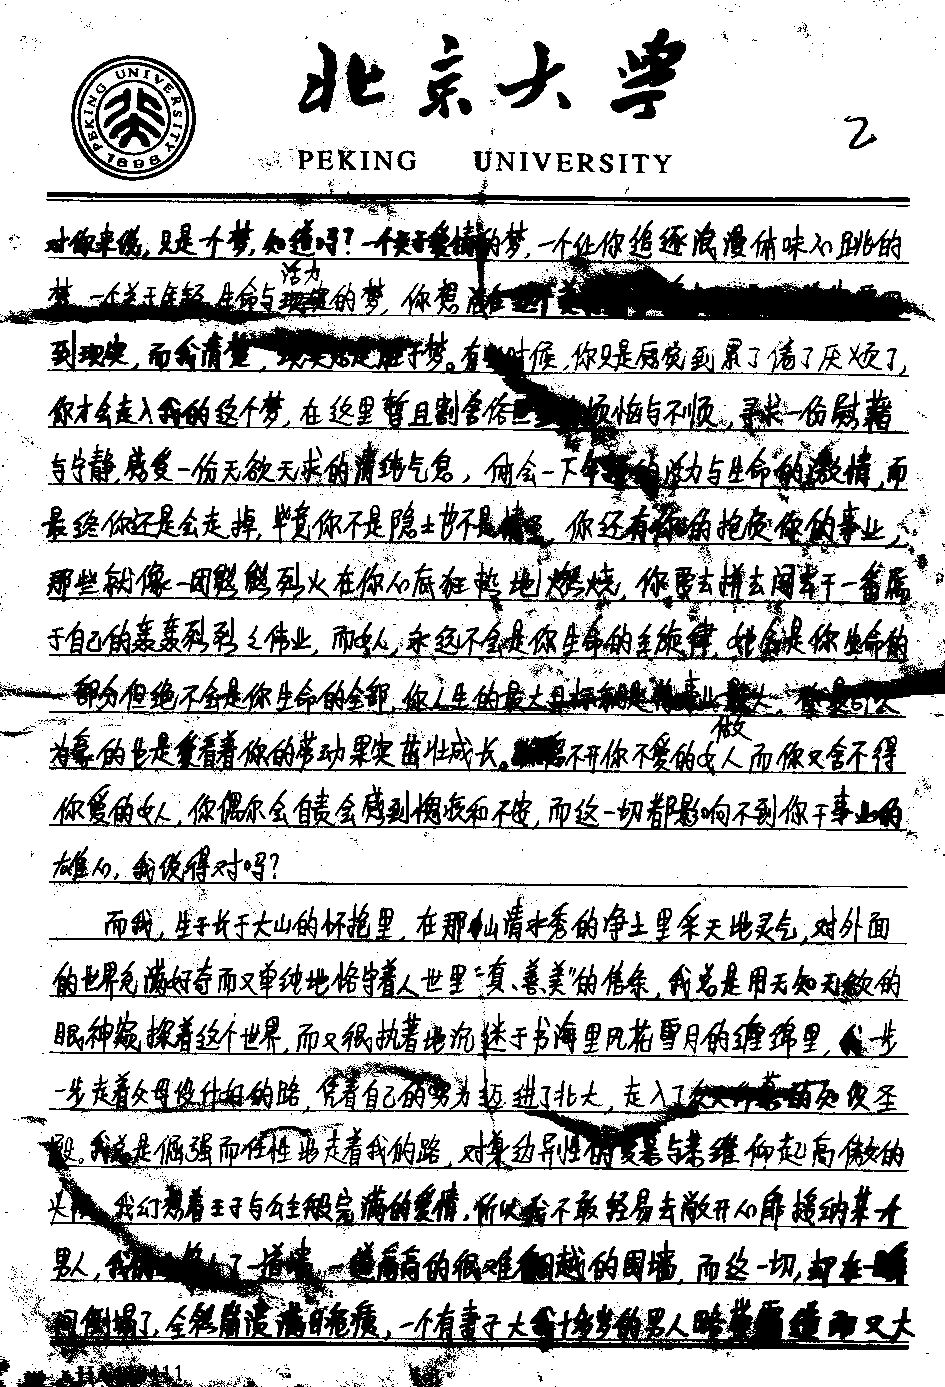 北京大学
PEKING UNIVERSITY
PEKING UNIVERSITY 1898
2
对你来说,只是个梦,知道吗?一个关于爱情的梦,一个让你追逐浪漫情味心跳的
活力
梦,一个关于年轻生命与的梦,你想
到现实,而我清楚,现实总是胜于梦。有时候,你只是感觉到累了倦了厌烦了,
你才会走入我的这个梦,在这里暂且割舍俗烦恼与不顺,寻求一份慰藉
与宁静,感受一份无欲无求的清纯气息,体会一下年的活力与生命的激情,而
最终你还是会走掉,毕竟你不是隐士也不是情,你还有你的抱负你的事业,
那些就像一团熊熊烈火在你心底狂热地燃烧,你要去拼去闯去干一番属
于自己的轰轰烈烈之伟业,而女人,永远不会是你生命的主旋律,她会是你生命的
一部分但绝不会是你生命的全部,你人生的最大目标事业
做
为豪的也是看着你的劳动果实茁壮成长。不开你不爱的女人而你又舍不得
你爱的女人,你偶尔会自责会感到愧疚和不安,而这一切都影响不到你干事业的
雄心,我说得对吗?
而我,生于长于大山的怀抱里,在那山清水秀的净土里采天地灵气,对外面
的世界充满好奇而又单纯地恪守着人世里“真、善、美”的信条,我总是用无知无欲的
眼神窥探着这个世界,而又很执著地沉迷于书海里风花雪月的缠绵里,我一步
一步走着父母设计好的路,凭着自己的努力迈进了北大,走入了圣
殿。我总是倔强而任性地走着我的路,对身边异性的爱慕与仰起高傲的
头,我幻想着王子与公主般完满的爱情,所以我不敢轻易去敞开心扉接纳某一个
男人,我了一道墙,一道高高的很难翻越的围墙,而这一切,却在一瞬
间倒塌了,全线崩溃满目疮痍,一个有妻子大我十岁的男人而又大